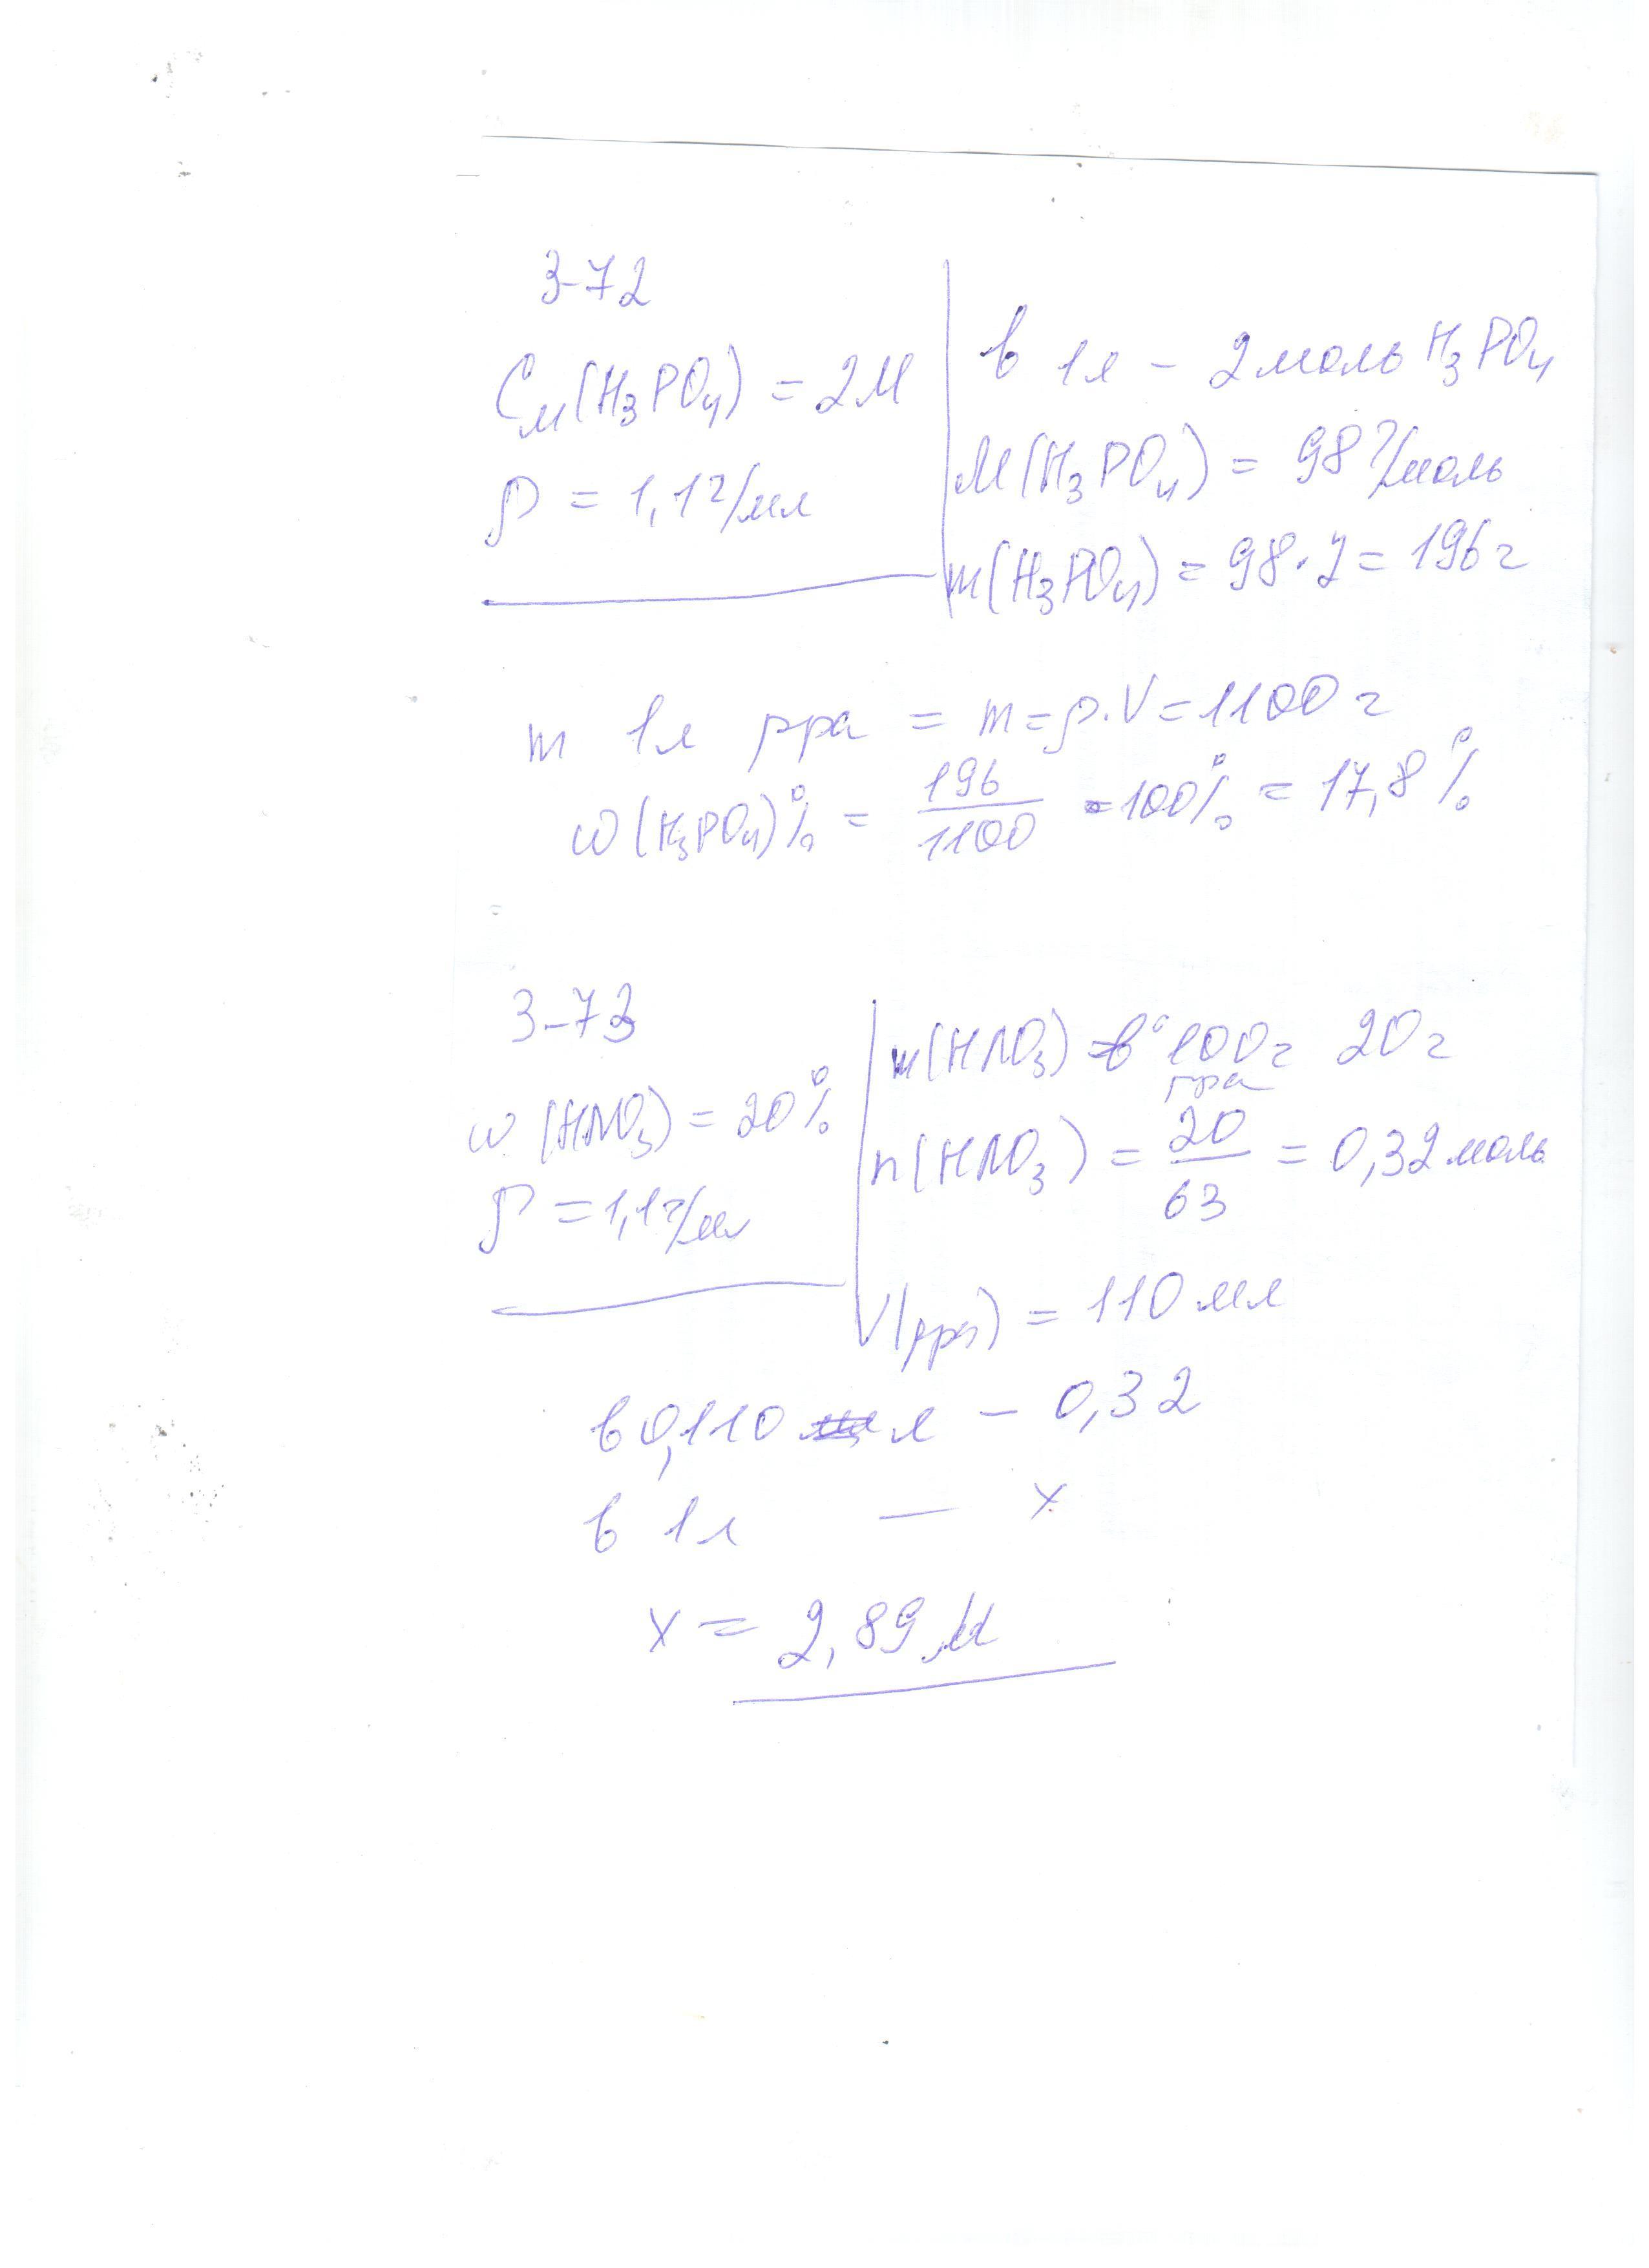 3-72
Cм(H3PO4) = 2М
ρ = 1,1г/мл
в 1л – 2моль H3PO4
М(H3PO4) = 98г/моль
m(H3PO4) = 98·2 = 196г
m 1л рра = m=ρ·V=1100г
ω(H3PO4)% = 196/1100 = 100% = 17,8%
3-73
ω(HNO3) = 20%
ρ = 1,1г/мл
m(HNO3) в 100г 20г
рра
n(HNO3) = 20/63 = 0,32моль
V(рра) = 110мл
в 0,110 л – 0,32
в 1л – x
x = 2,89М